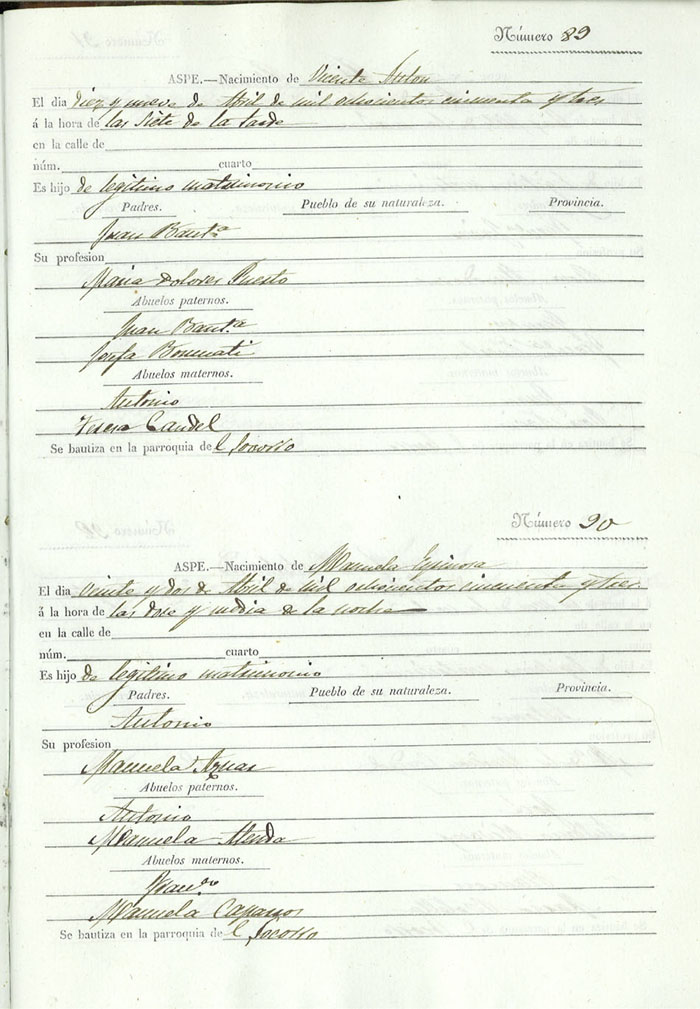 Número 89
ASPE.—Nacimiento de Vicente Anton
El dia diez y nueve de Abril de mil ochocientos cincuenta y tres
á la hora de las siete de la tarde
en la calle de
núm. cuarto
Es hijo de legitimo matrimonio
Padres. Pueblo de su naturaleza. Provincia.
Juan Bauta
Su profesion
Maria Dolores
Abuelos paternos.
Juan Bauta
Josefa Bonmati
Abuelos maternos.
Antonio
Teresa Candel
Se bautiza en la parroquia del Socorro
Número 90
ASPE.—Nacimiento de Manuela Espinosa
El dia veinte y dos de Abril de mil ochocientos cincuenta y tres
á la hora de las doce y media de la noche
en la calle de
núm. cuarto
Es hijo de legitimo matrimonio
Padres. Pueblo de su naturaleza. Provincia.
Antonio
Su profesion
Manuela Aznar
Abuelos paternos.
Antonio
Manuela
Abuelos maternos.
Franco
Manuela Caparros
Se bautiza en la parroquia del Socorro